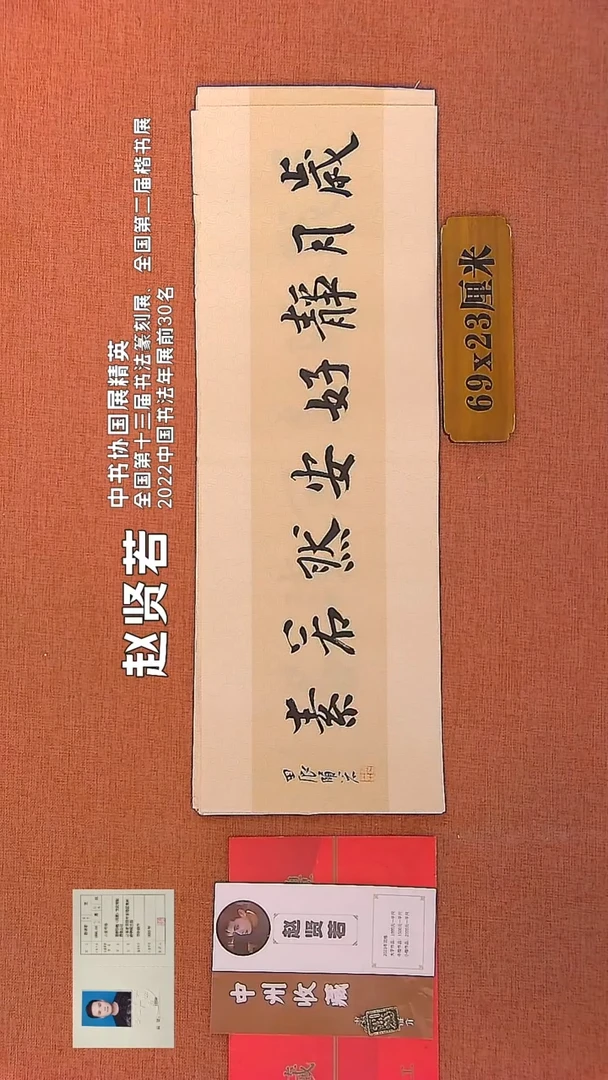 赵贤若
中书协国展精英
全国第十三届书法篆刻展、全国第二届楷书展
2022中国书法年展前30名
歲月靜好安然若素
甲辰賢若
69x23厘米
赵贤若
中州收藏
藏